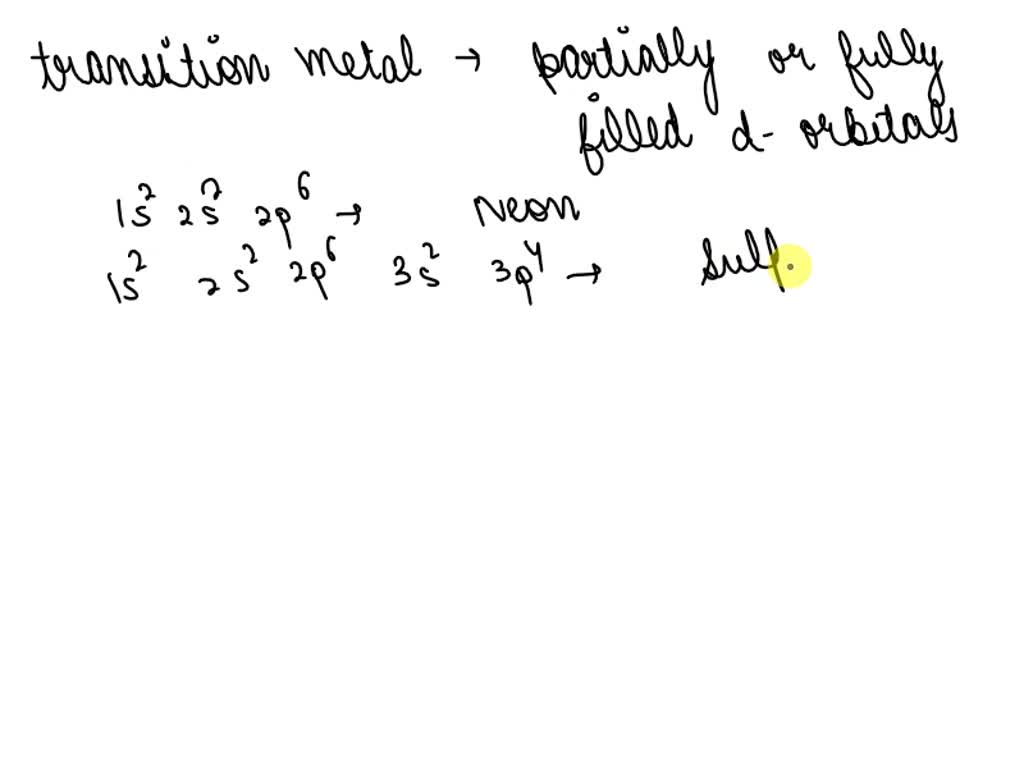 transition metal → partially or fully
filled d- orbitals
1s² 2s² 2p⁶ → Neon
1s² 2s² 2p⁶ 3s² 3p⁴ → Sulf